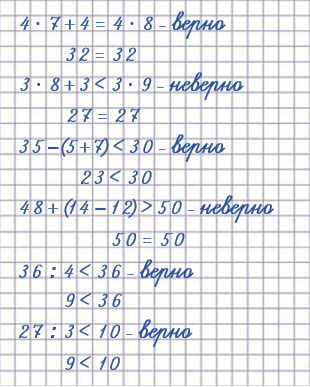 4 · 7 + 4 = 4 · 8 – верно
32 = 32
3 · 8 + 3 < 3 · 9 – неверно
27 = 27
35 – (5 + 7) < 30 – верно
23 < 30
48 + (14 – 12) > 50 – неверно
50 = 50
36 : 4 < 36 – верно
9 < 36
27 : 3 < 10 – верно
9 < 10